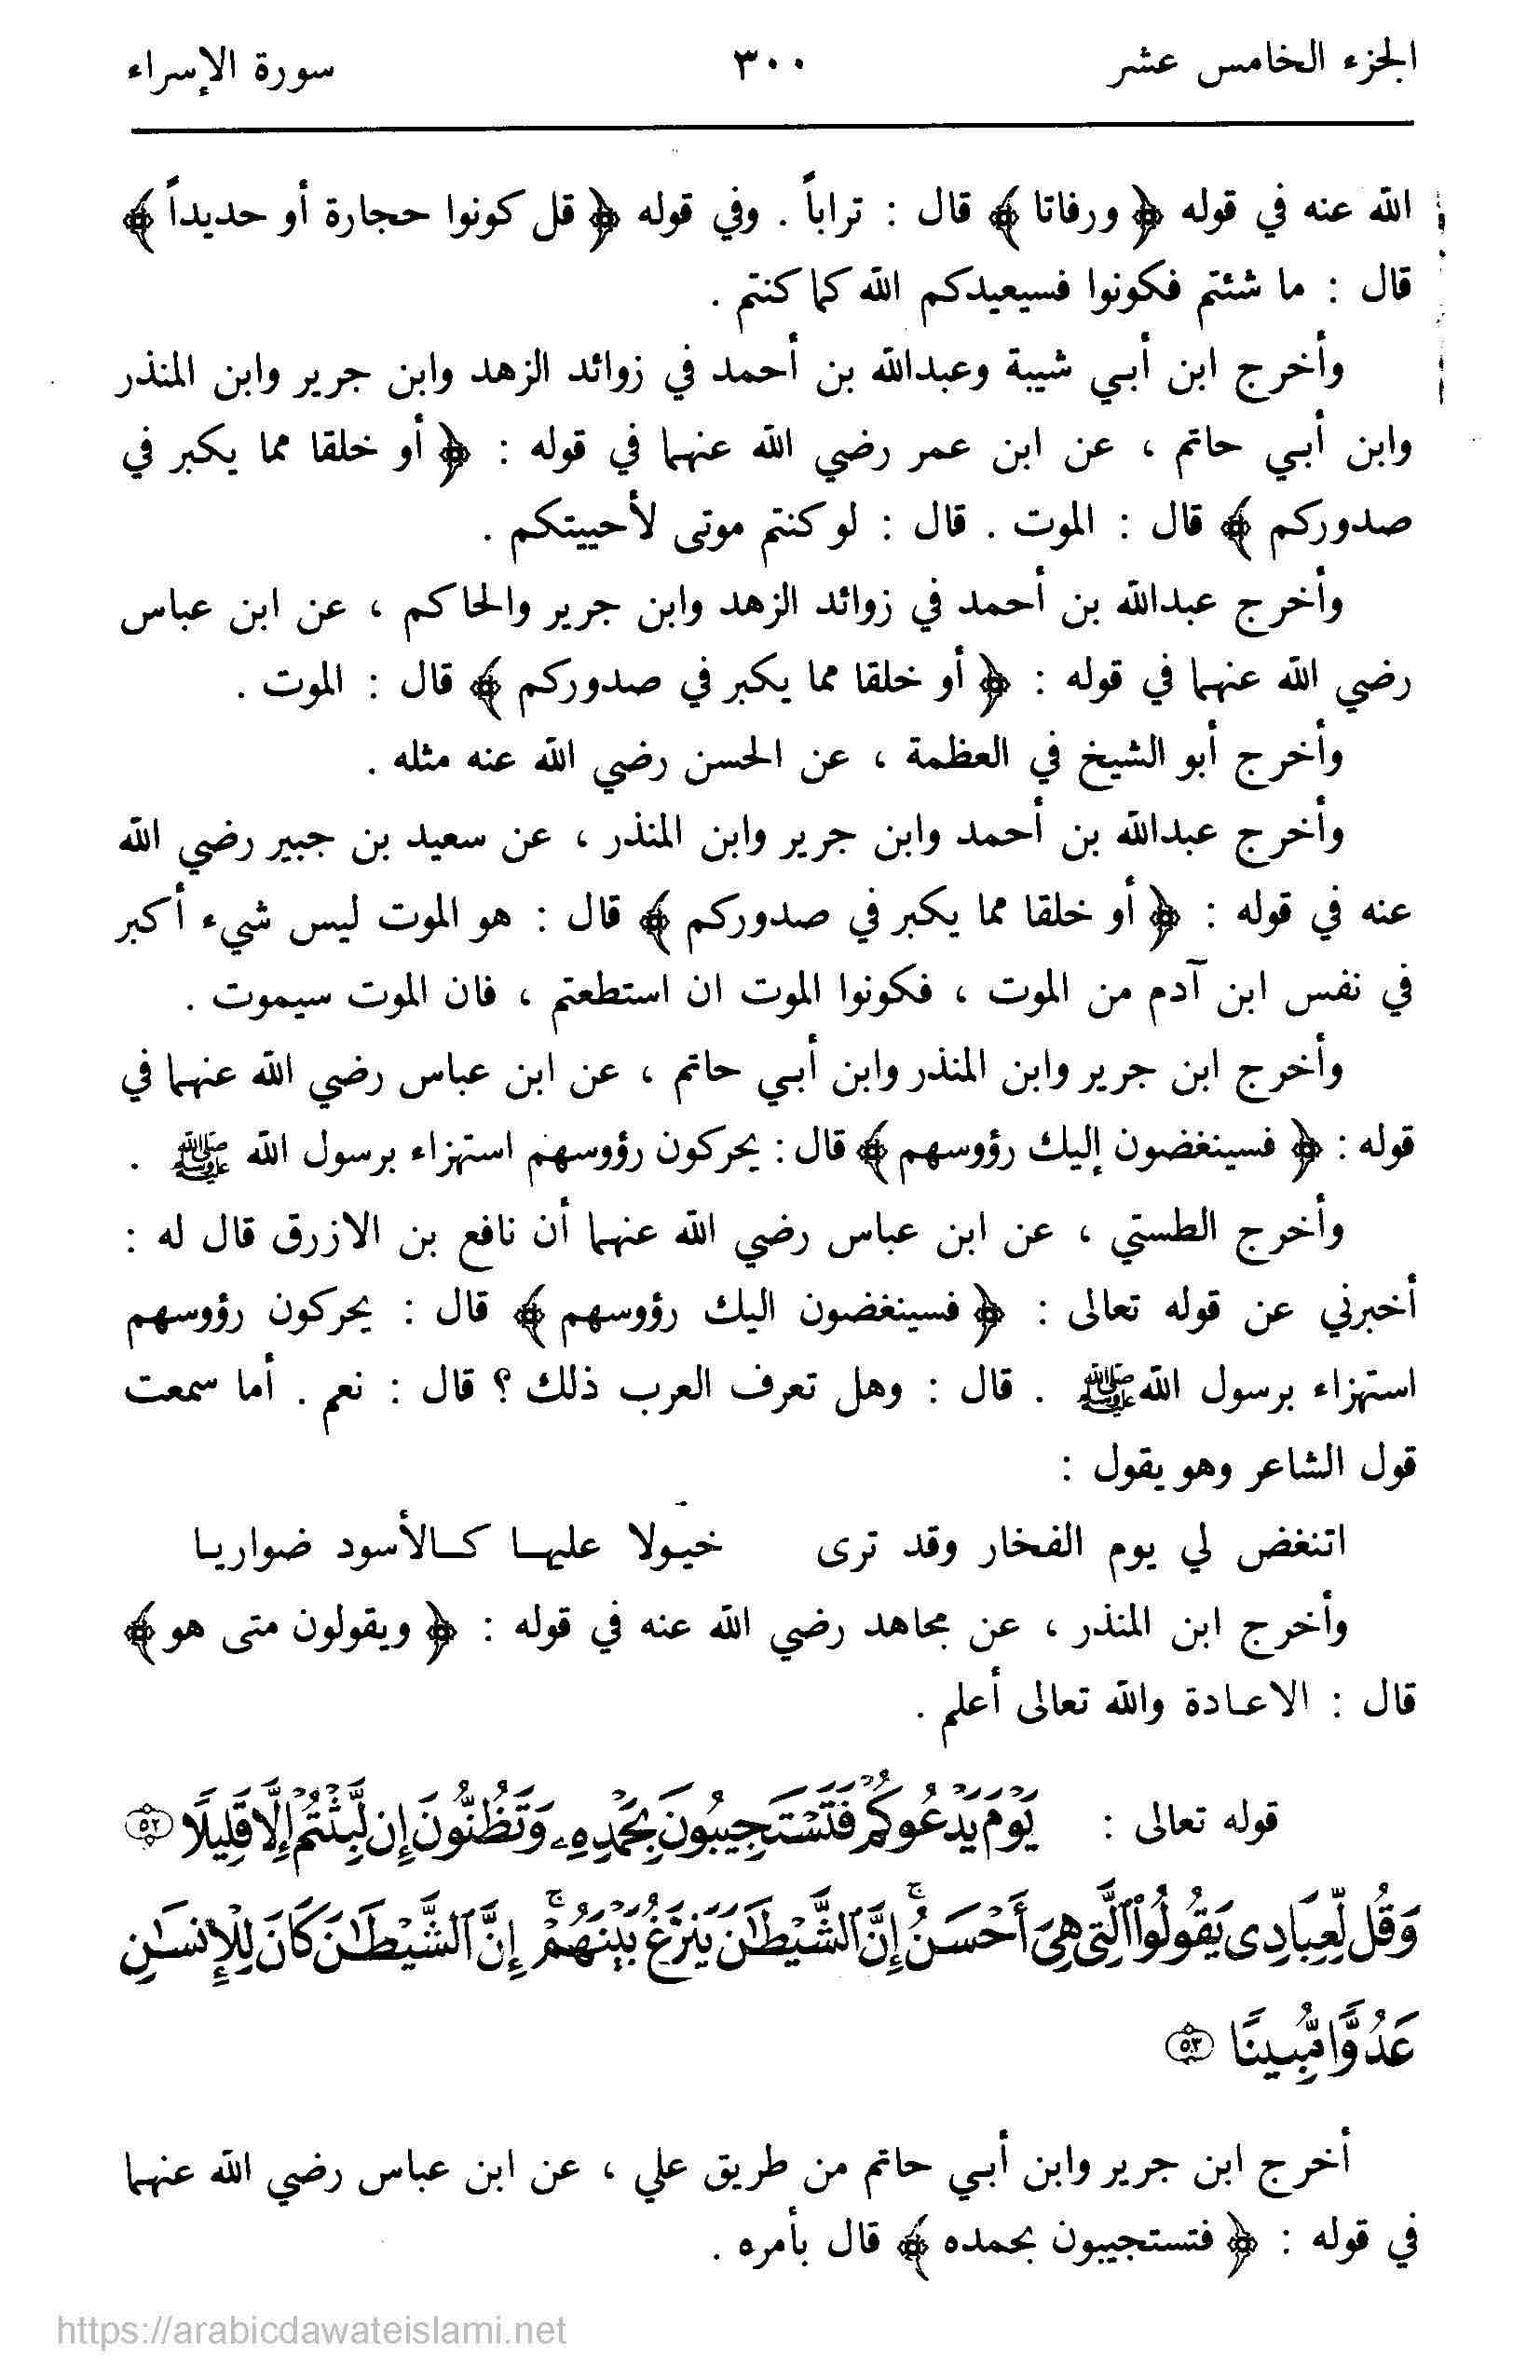 الجزء الخامس عشر ٣٠٠ سورة الإسراء
الله عنه في قوله ﴿ ورفاتا ﴾ قال : تراباً . وفي قوله ﴿ قل كونوا حجارة أو حديداً ﴾
قال : ما شئتم فكونوا فسيعيدكم الله كما كنتم .
وأخرج ابن أبي شيبة وعبدالله بن أحمد في زوائد الزهد وابن جرير وابن المنذر
وابن أبي حاتم ، عن ابن عمر رضي الله عنهما في قوله : ﴿ أو خلقا مما يكبر في
صدوركم ﴾ قال : الموت . قال : لو كنتم موتى لأحييتكم .
وأخرج عبدالله بن أحمد في زوائد الزهد وابن جرير والحاكم ، عن ابن عباس
رضي الله عنهما في قوله : ﴿ أو خلقا مما يكبر في صدوركم ﴾ قال : الموت .
وأخرج أبو الشيخ في العظمة ، عن الحسن رضي الله عنه مثله .
وأخرج عبدالله بن أحمد وابن جرير وابن المنذر ، عن سعيد بن جبير رضي الله
عنه في قوله : ﴿ أو خلقا مما يكبر في صدوركم ﴾ قال : هو الموت ليس شيء أكبر
في نفس ابن آدم من الموت ، فكونوا الموت ان استطعتم ، فان الموت سيموت .
وأخرج ابن جرير وابن المنذر وابن أبي حاتم ، عن ابن عباس رضي الله عنهما في
قوله : ﴿ فسينغضون إليك رؤوسهم ﴾ قال : يحركون رؤوسهم استهزاء برسول الله ﷺ .
وأخرج الطستي ، عن ابن عباس رضي الله عنهما أن نافع بن الازرق قال له :
أخبرني عن قوله تعالى : ﴿ فسينغضون اليك رؤوسهم ﴾ قال : يحركون رؤوسهم
استهزاء برسول الله ﷺ . قال : وهل تعرف العرب ذلك ؟ قال : نعم . أما سمعت
قول الشاعر وهو يقول :
اتنغض لي يوم الفخار وقد ترى خيولا عليها كالأسود ضواريا
وأخرج ابن المنذر ، عن مجاهد رضي الله عنه في قوله : ﴿ ويقولون متى هو ﴾
قال : الاعادة والله تعالى أعلم .
قوله تعالى : يَوْمَ يَدْعُوكُمْ فَتَسْتَجِيبُونَ بِحَمْدِهِۦ وَتَظُنُّونَ إِن لَّبِثْتُمْ إِلَّا قَلِيلًا ٥٢
وَقُل لِّعِبَادِى يَقُولُوا۟ ٱلَّتِى هِىَ أَحْسَنُ ۚ إِنَّ ٱلشَّيْطَٰنَ يَنزَغُ بَيْنَهُمْ ۚ إِنَّ ٱلشَّيْطَٰنَ كَانَ لِلْإِنسَٰنِ
عَدُوًّا مُّبِينًا ٥٣
أخرج ابن جرير وابن أبي حاتم من طريق علي ، عن ابن عباس رضي الله عنهما
في قوله : ﴿ فتستجيبون بحمده ﴾ قال بأمره .
https://arabicdawateislami.net